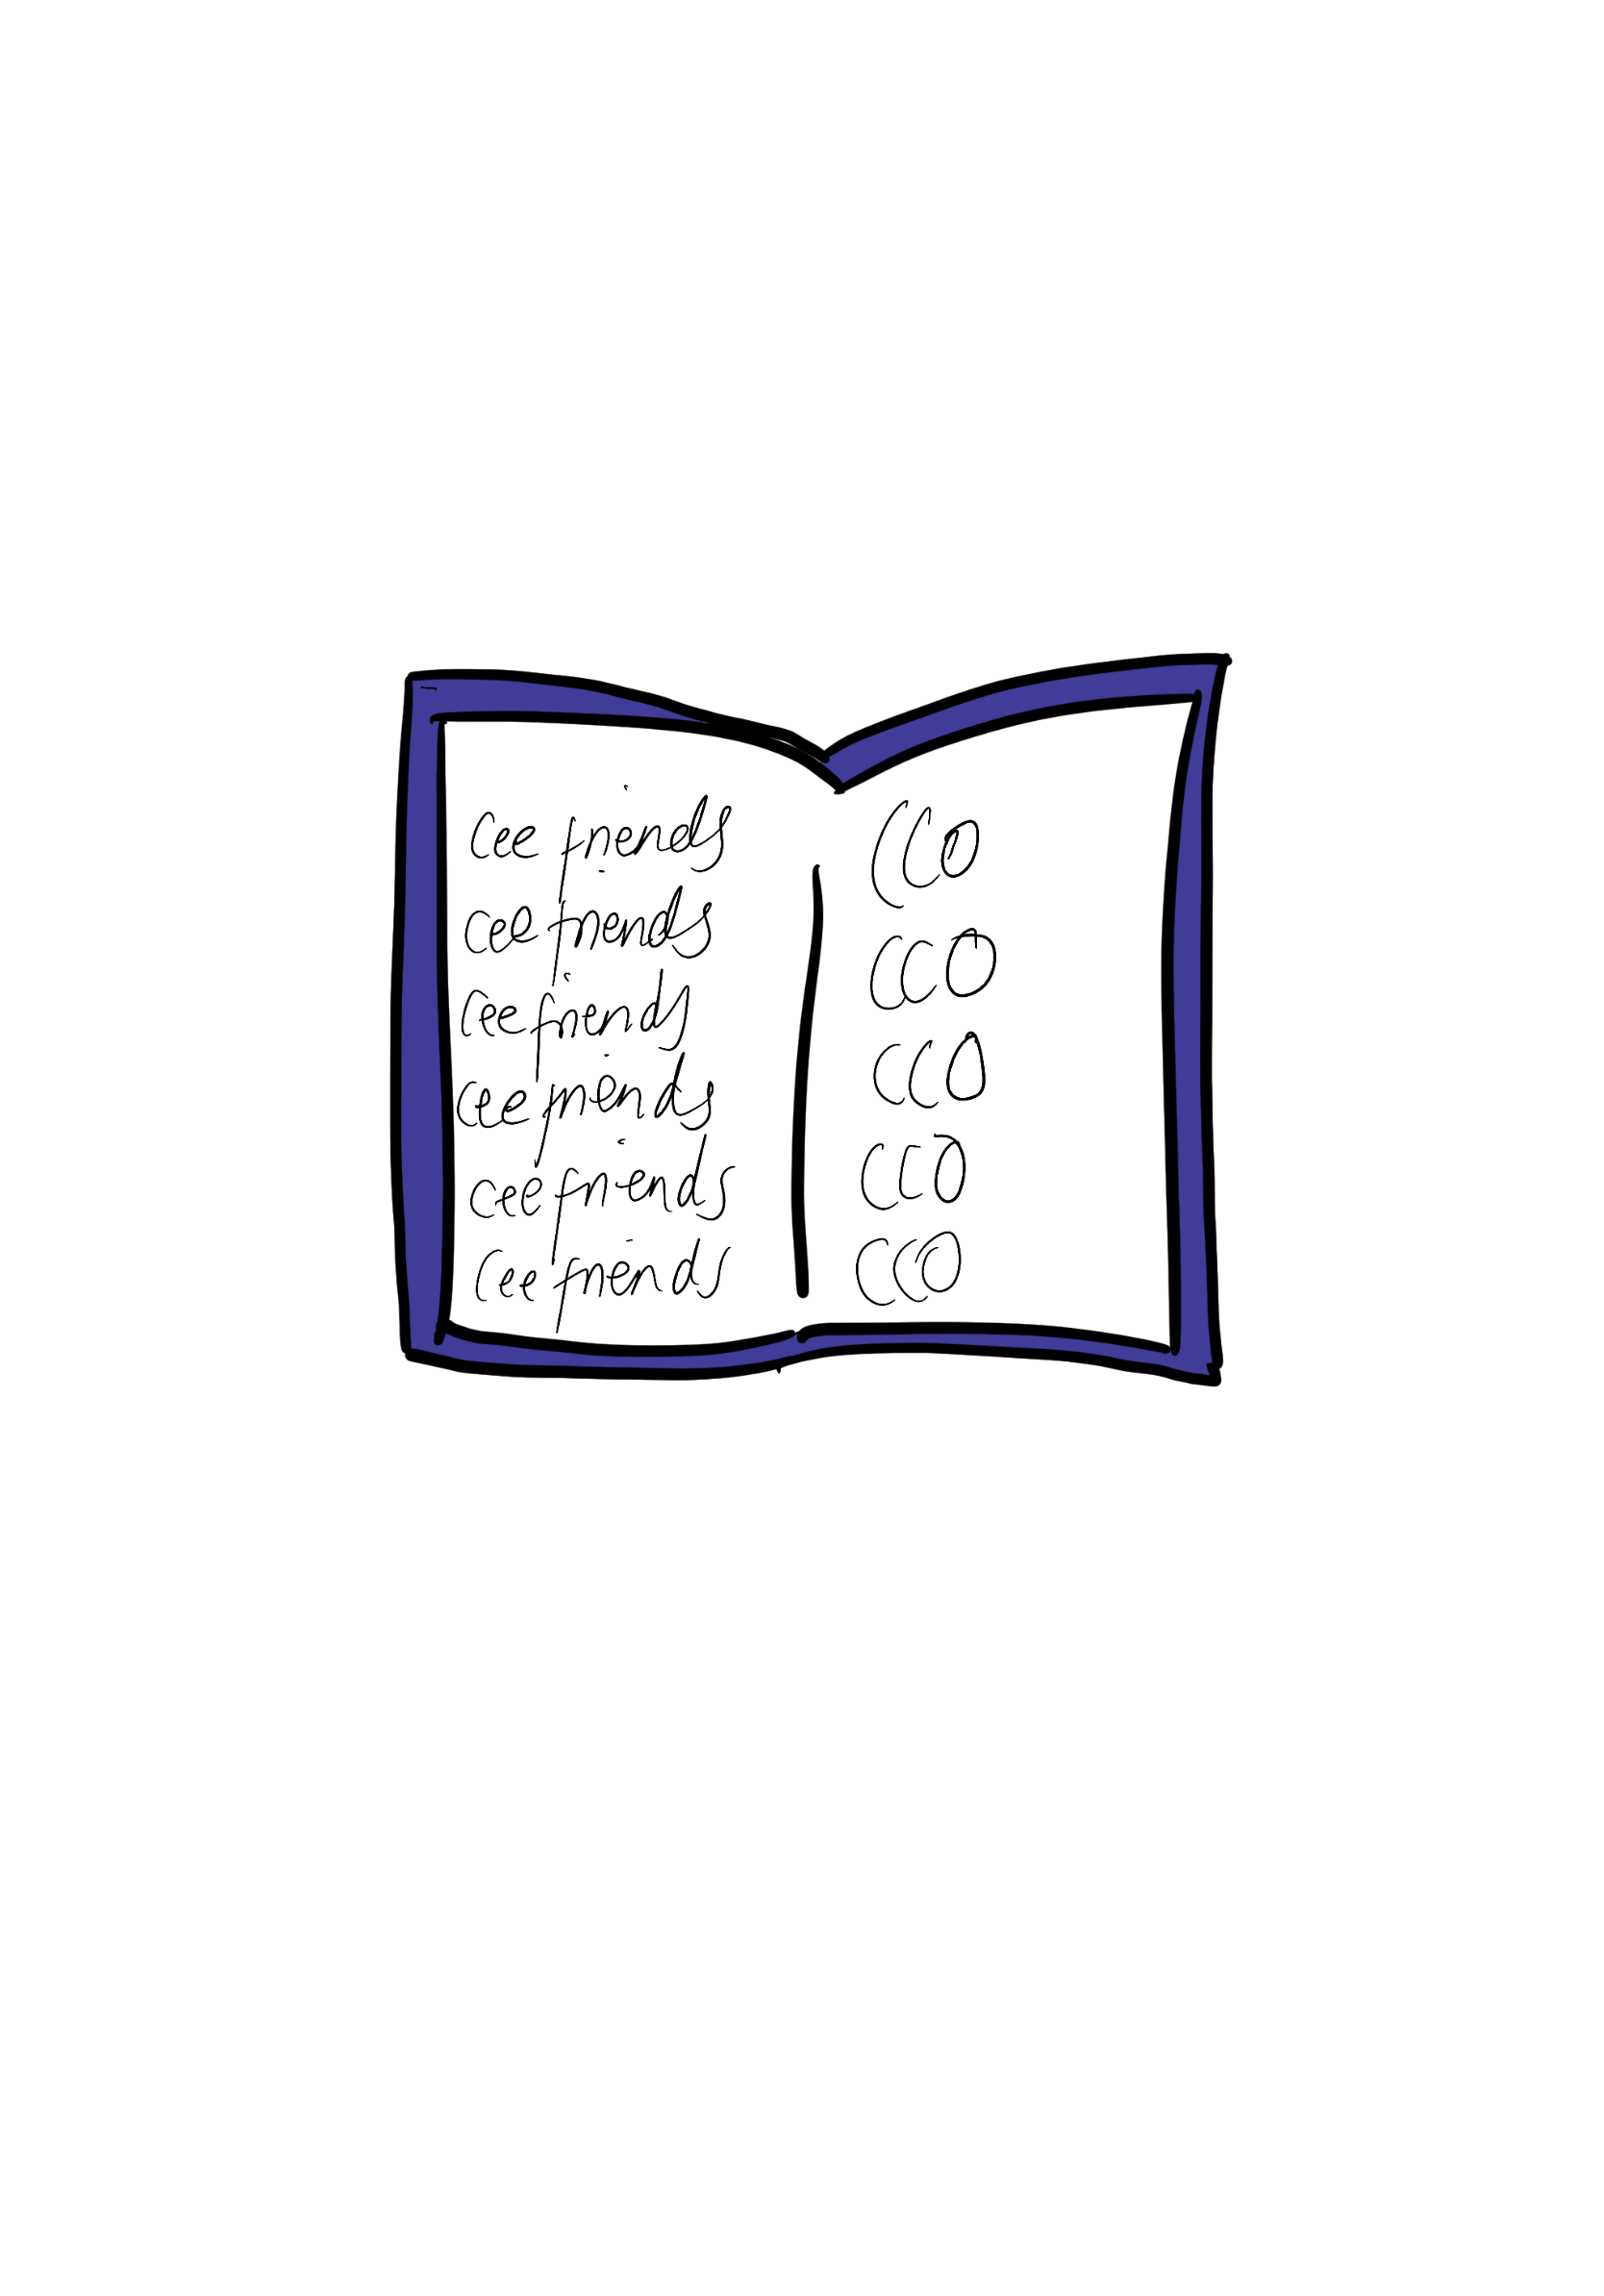 Cee friends
Cee friends
Cee friends
Cee friends
Cee friends
Cee friends
CCO
CCO
CCO
CCO
CCO